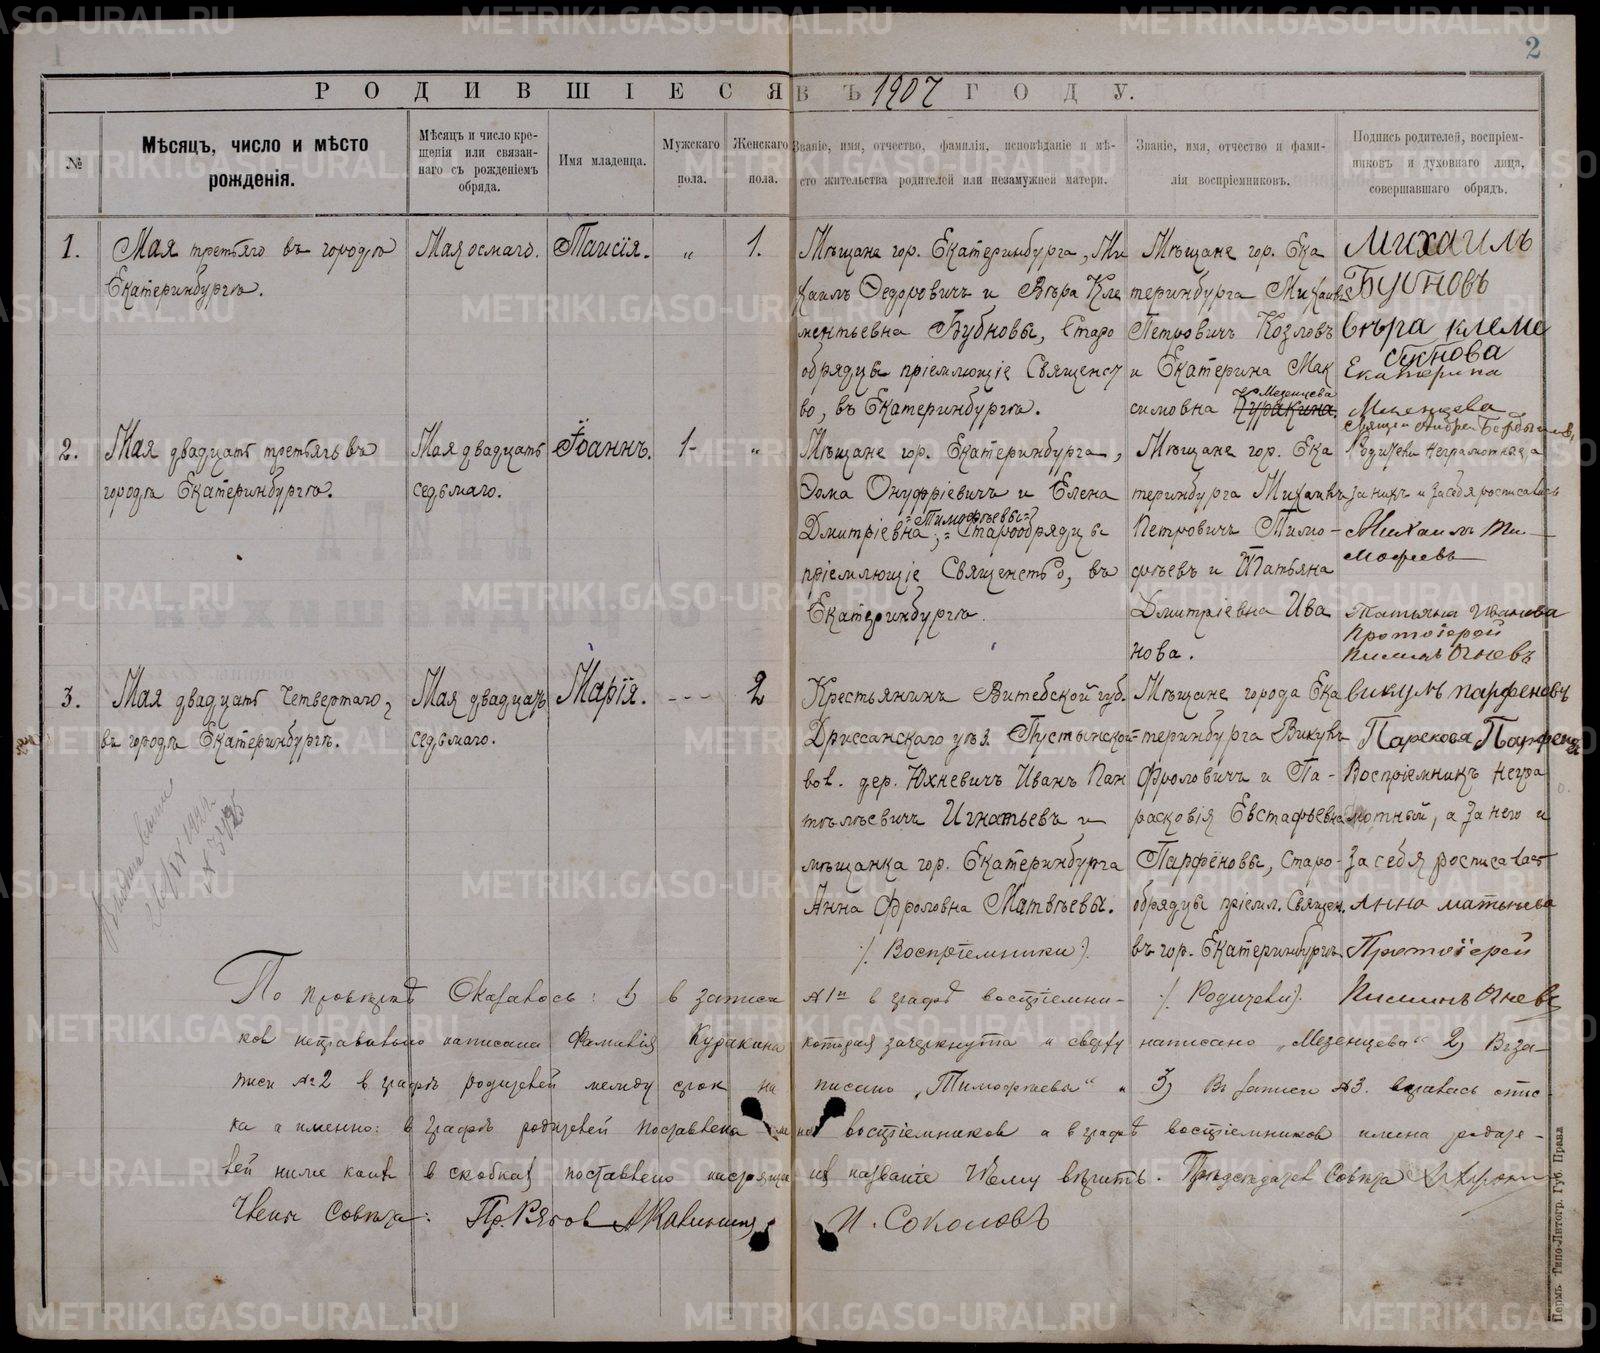 2
РОДИВШІЕСЯ ВЪ 1907 ГОДУ.
№
Мѣсяцъ, число и мѣсто
рожденія.
Мѣсяцъ и число кре-
щенія или связан-
наго съ рожденіемъ
обряда.
Имя младенца.
Мужскаго
пола.
Женскаго
пола.
Званіе, имя, отчество, фамилія, исповѣданіе и мѣ-
сто жительства родителей или незамужней матери.
Званіе, имя, отчество и фами-
лія воспріемниковъ.
Подпись родителей, воспріем-
никовъ и духовнаго лица,
совершавшаго обрядъ.
1.
Мая третьяго въ городѣ
Екатеринбургѣ.
Мая осмаго.
Таисія.
„
1.
Мѣщане гор. Екатеринбурга, Ми
хаилъ Ѳедоровичъ и Вѣра Кле
ментьевна Бубновы, Старо
обрядцы пріемлющіе Священст
во, въ Екатеринбургѣ.
Мѣщане гор. Ека
теринбурга Михаилъ
Петровичъ Козловъ
и Екатерина Мак
симовна Куракина
Мезенцева
Михаилъ
Бубновъ
Вѣра клеме
Бубнова
Екатерина
Мезенцева
Священ Андрей
2.
Мая двадцать третьяго въ
городѣ Екатеринбургѣ.
Мая двадцать
седьмаго.
Іоаннъ.
1-
„
Мѣщане гор. Екатеринбурга,
Ѳома Онуфріевичъ и Елена
=Тимофѣевы=
Дмитріевна,= Старообрядцы
пріемлющіе Священство, въ
Екатеринбургѣ.
Мѣщане гор. Ека
теринбурга Михаилъ
Петровичъ Тимо-
фѣевъ и Татьяна
Дмитріевна Ива
нова.
Родители неграмотные, а
за нихъ и за себя росписалсь
Михаилъ Ти-
мофеевъ
Татьяна Иванова
Протоіерей
Пименъ Огневъ
3.
Мая двадцать четвертаго,
въ городѣ Екатеринбургѣ.
Мая двадцать
седьмаго.
Марія.
---
2
Крестьянинъ Витебской губ.
Дриссанскаго уѣз. Пустынской
вол. дер. Юхневичъ Иванъ Пан
телѣевичъ Игнатьевъ и
мѣщанка гор. Екатеринбурга
Анна Фроловна Матвѣевы.
/. Воспріемники).
Мѣщане города Ека
теринбурга Викулъ
Фроловичъ и Па-
расковія Евстафьевна
Парфёновы, Старо-
обрядцы пріемл. Священ.
въ гор. Екатеринбургѣ
/. Родители).
викулъ парфеновъ
Парскова Парфенова
Воспріемникъ негра
мотный, а за него и
за себя росписалась
Анна матвѣева
Протоіерей
Пименъ Огневъ
По провѣркѣ Оказалось: 1) в записи №1й в графѣ воспріемни-
ков неправильно написана фамилія Куракина которая зачеркнута и сверху написано „Мезенцева“ 2) В за-
писи №2 в графѣ родителей между строк на писано „Тимофѣевы“ и 3) В записи №3. оказалась опис-
ка а именно: в графѣ родителей поставлена имена воспріемников а в графѣ воспріемников имена родите-
лей ниже коих в скобках поставлено настоящее их названіе Чему вѣрить. Предсѣдатель Совѣта
Члены Совѣта: Пр. Рябов АКалинин И. Соколовъ
Пермь Типо-Литогр. Губ. Правл
METRIKI.GASO-URAL.RU